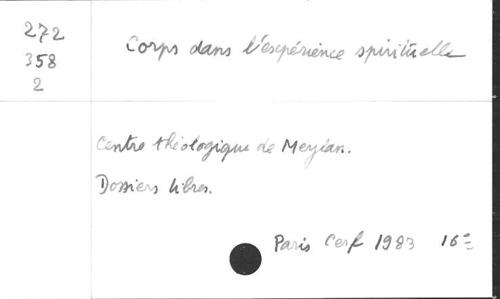 272
358
2
Corps dans l'expérience spirituelle
Centre théologique de Meylan.
Dossiers libres.
Paris Cerf 1983 16=